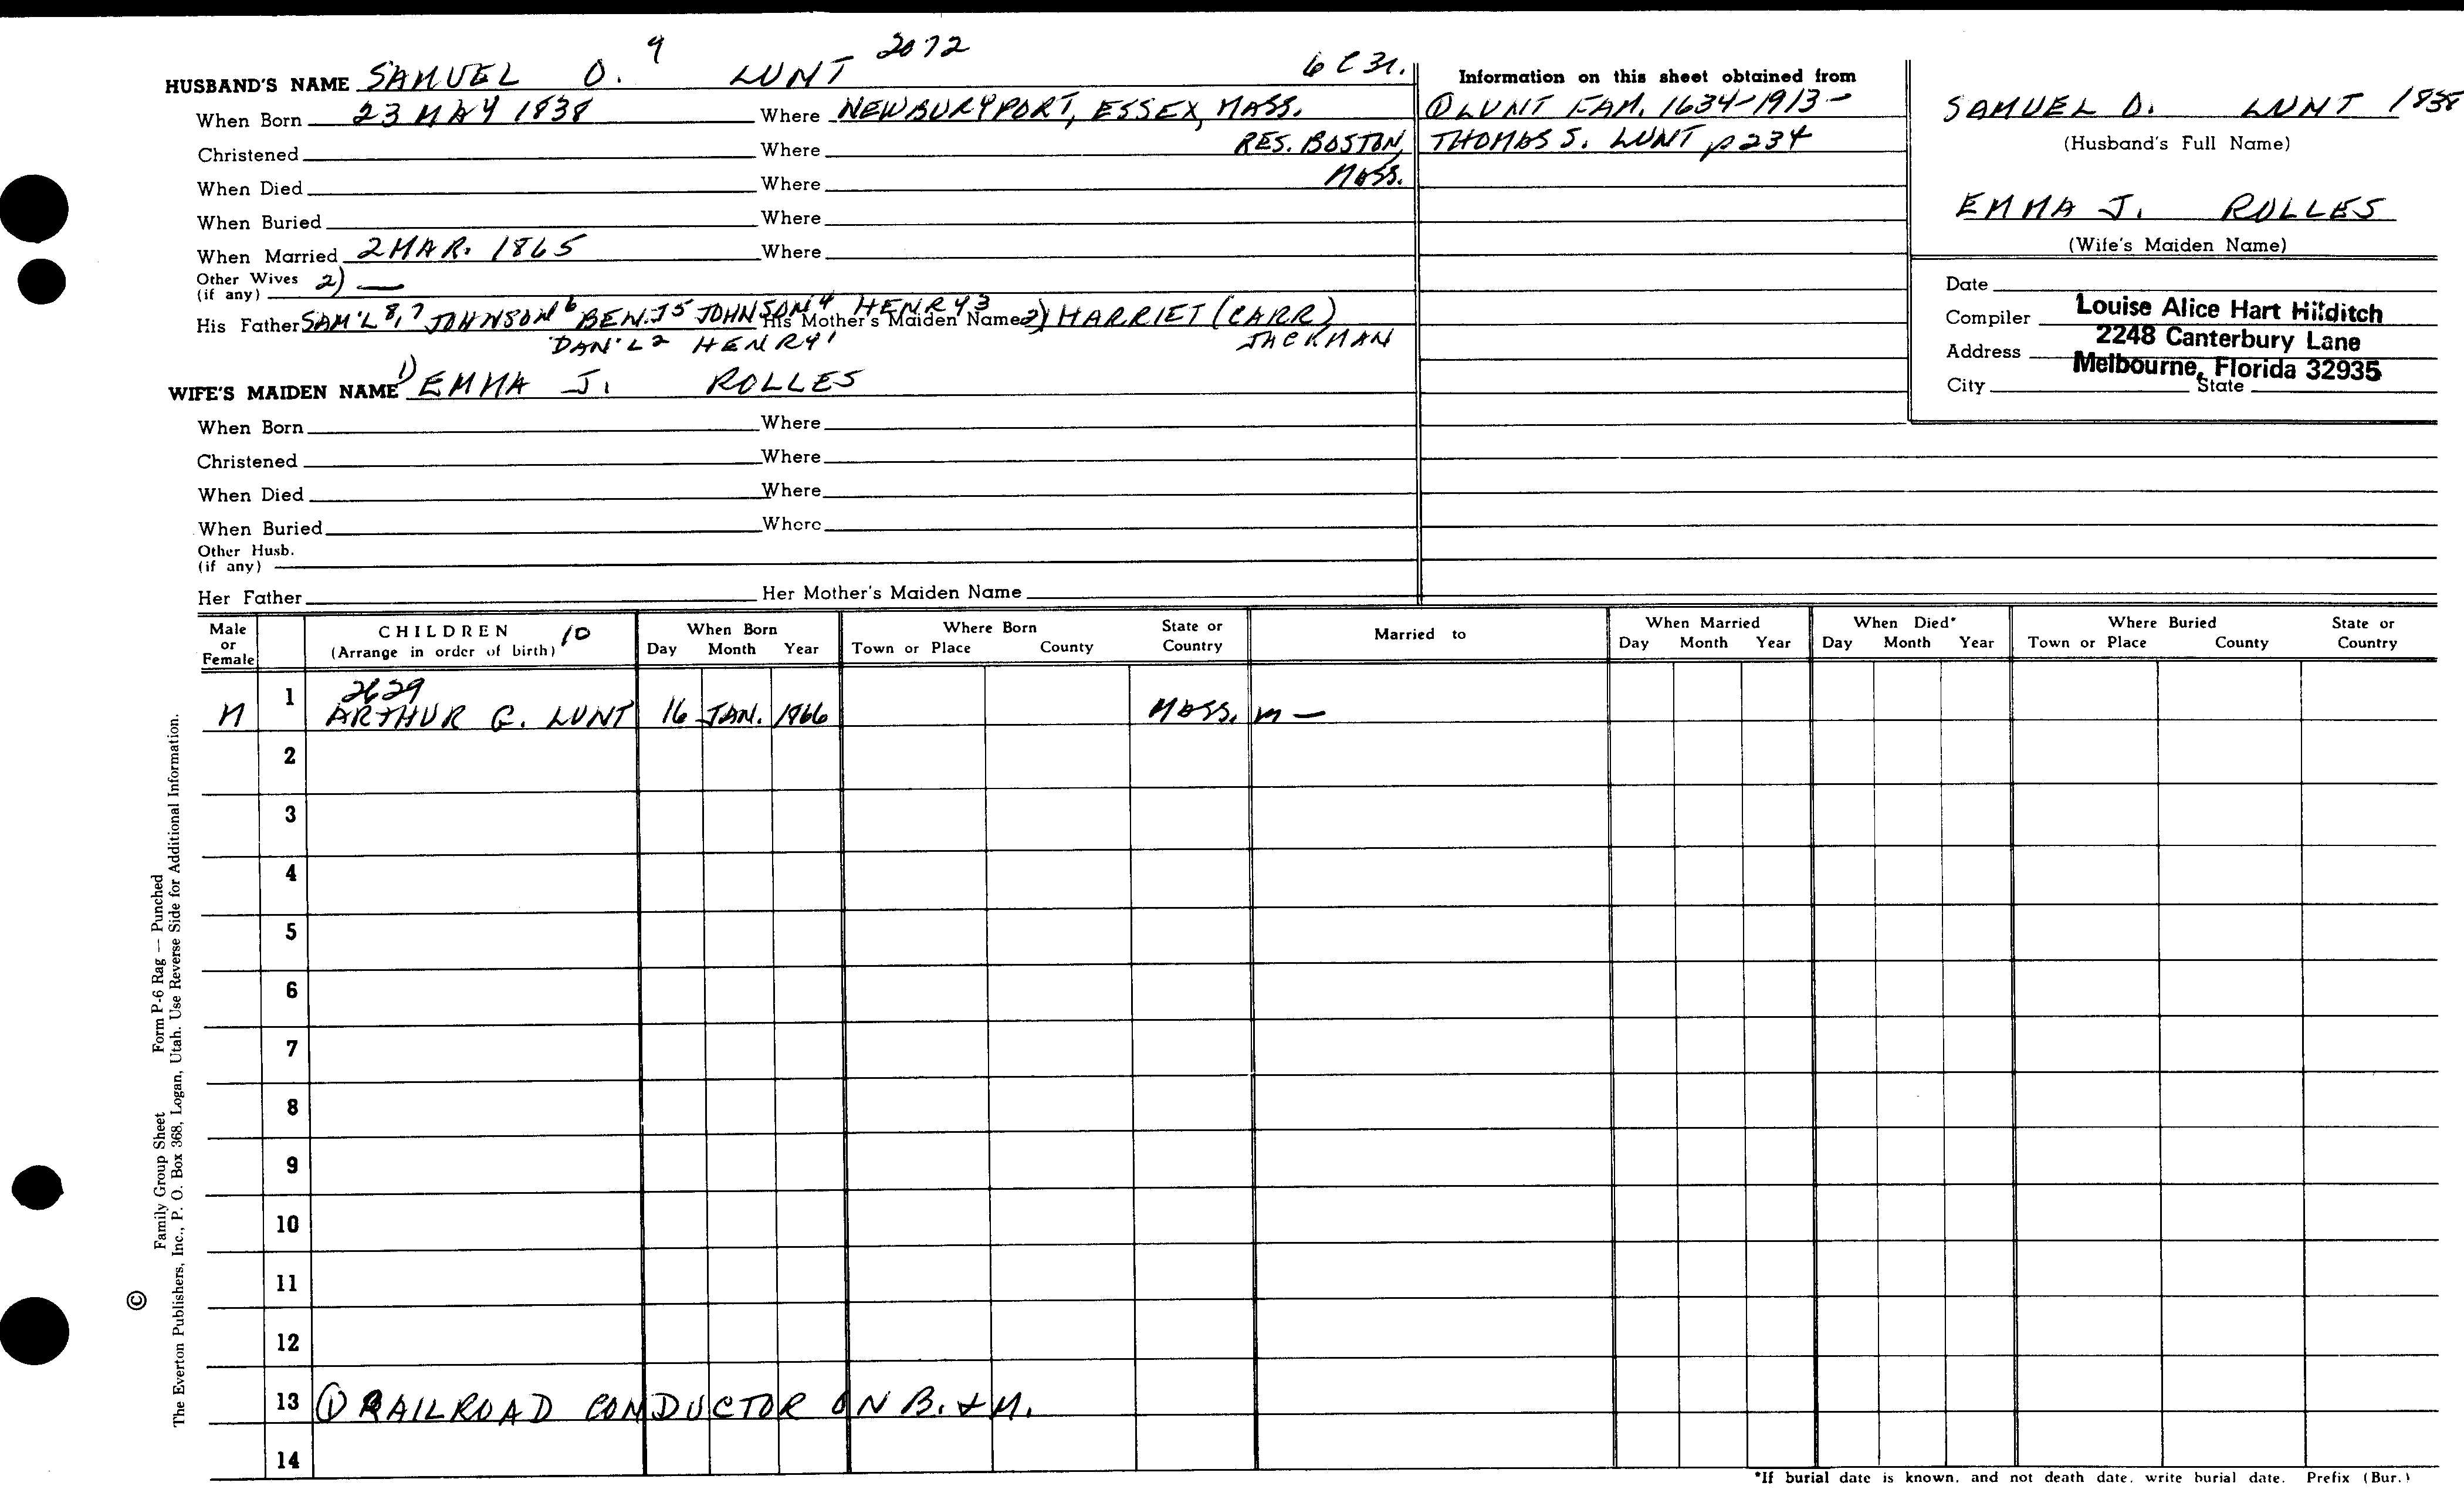 9 2072
HUSBAND'S NAME SAMUEL O. LUNT 6 C 31.
When Born 23 MAY 1838 Where NEWBURYPORT, ESSEX, MASS.
Christened Where RES. BOSTON,
When Died Where MASS.
When Buried Where
When Married 2 MAR. 1865 Where
Other Wives 2) —
(if any)
His Father SAM'L 8,7 JOHNSON 6 BENJ 5 JOHNSON 4 HENRY 3 His Mother's Maiden Name 2) HARRIET (CARR)
DAN'L 2 HENRY 1 JACKMAN
WIFE'S MAIDEN NAME 1) EMMA J. ROLLES
When Born Where
Christened Where
When Died Where
When Buried Where
Other Husb.
(if any)
Her Father Her Mother's Maiden Name
Information on this sheet obtained from
① LUNT FAM. 1634-1913 -
THOMAS S. LUNT p 234
SAMUEL O. LUNT 1838
(Husband's Full Name)
EMMA J. ROLLES
(Wife's Maiden Name)
Date
Compiler Louise Alice Hart Hilditch
2248 Canterbury Lane
Address
Melbourne, Florida 32935
City State
Male or Female CHILDREN 10 (Arrange in order of birth) When Born Day Month Year Where Born Town or Place County State or Country Married to When Married Day Month Year When Died* Day Month Year Where Buried Town or Place County State or Country
2629
M 1 ARTHUR G. LUNT 16 JAN. 1866 MASS. m —
2
3
4
5
6
7
8
9
10
11
12
13 ① RAILROAD CONDUCTOR ON B. & M.
14
*If burial date is known, and not death date, write burial date. Prefix (Bur.)
© Family Group Sheet Form P-6 Rag — Punched
The Everton Publishers, Inc., P. O. Box 368, Logan, Utah. Use Reverse Side for Additional Information.